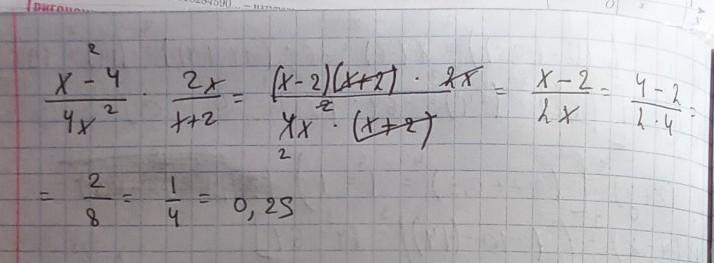 (x² - 4)/(4x²) · (2x)/(x+2) = ((x-2)(x+2) · 2x)/(4x² · (x+2)) = (x-2)/(2x) = (4-2)/(2·4) =
= 2/8 = 1/4 = 0,25